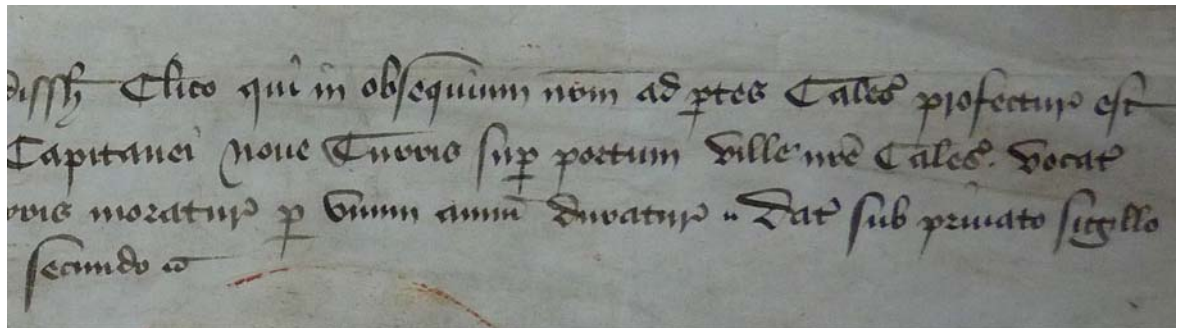 Clico qui in obsequium nr̄m ad ꝑtes Cales̄ profectur̄ est
Capitanei Noue Turris suꝑ portum ville nr̄e Cales̄. vocat̄
moratur̄ ꝑ vnum annū duratur̄ Dat̄ sub priuato sigillo
secundo